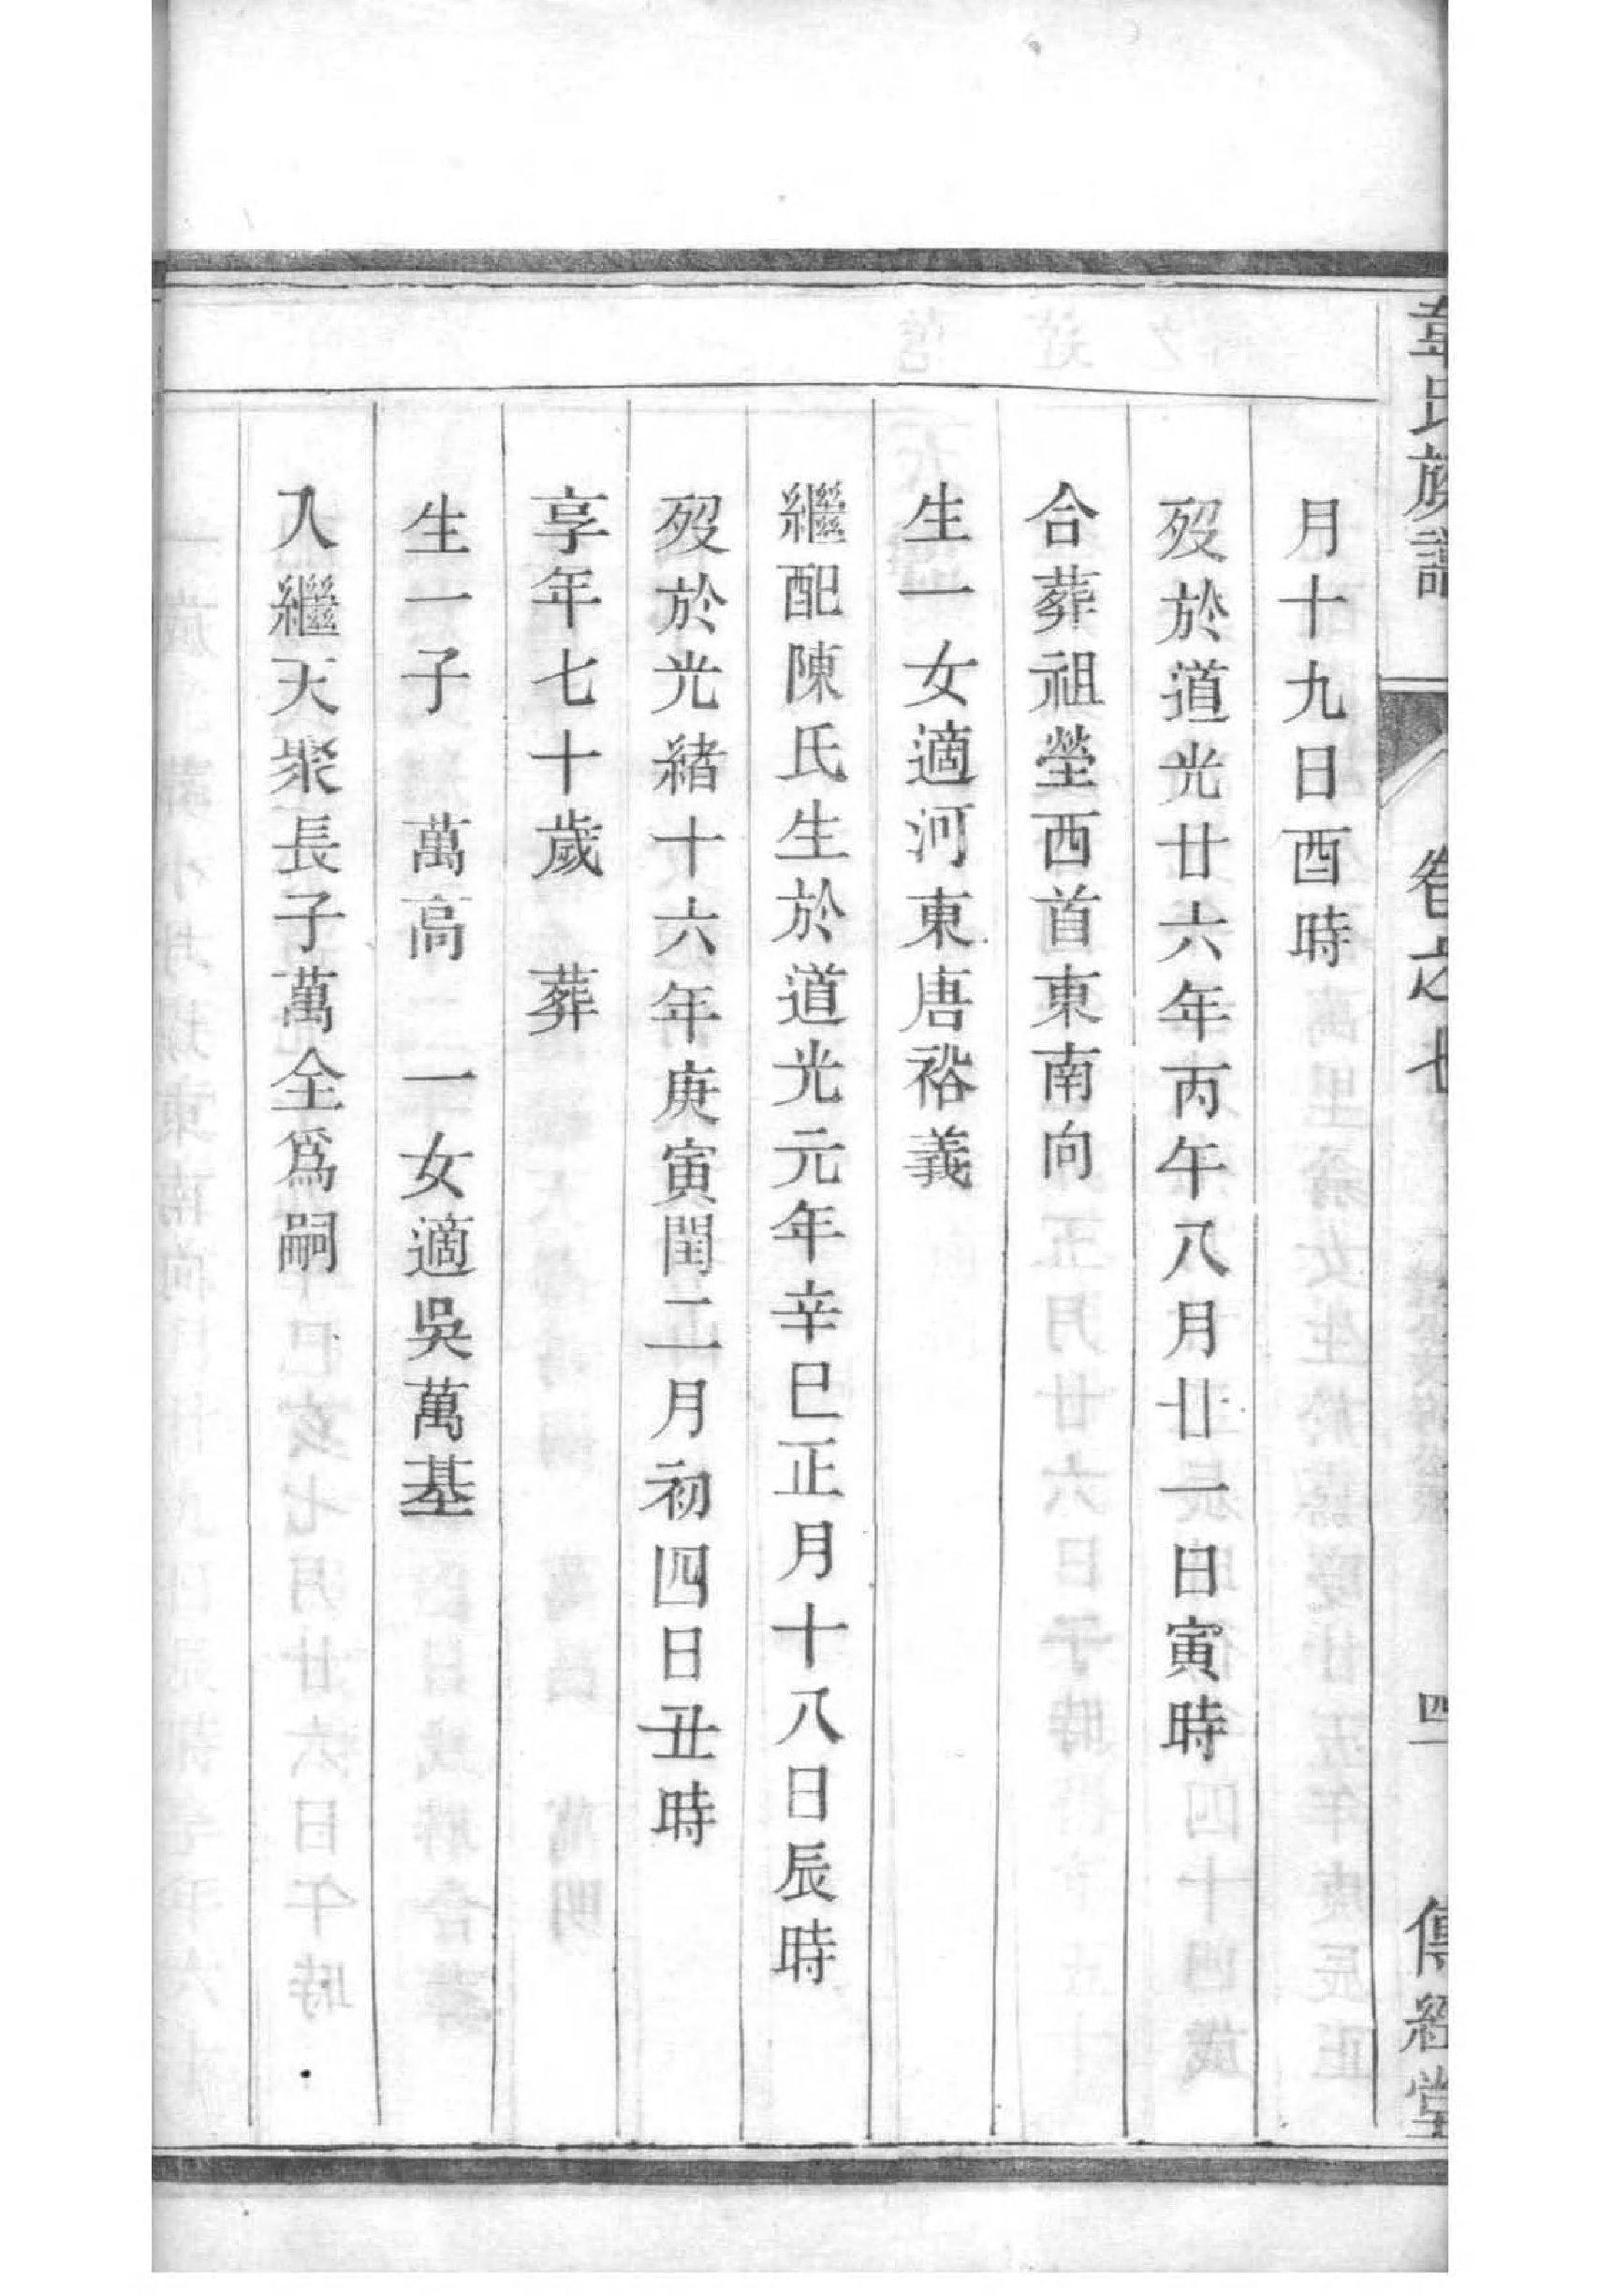 韋氏族譜 卷之七 四 傳經堂
月十九日酉時
歿於道光廿六年丙午八月廿一日寅時
合葬祖塋西首東南向
生一女適河東唐裕義
繼配陳氏生於道光元年辛巳正月十八日辰時
歿於光緒十六年庚寅閏二月初四日丑時
享年七十歲 葬
生一子 萬高 一女適吳萬基
入繼天聚長子萬全爲嗣